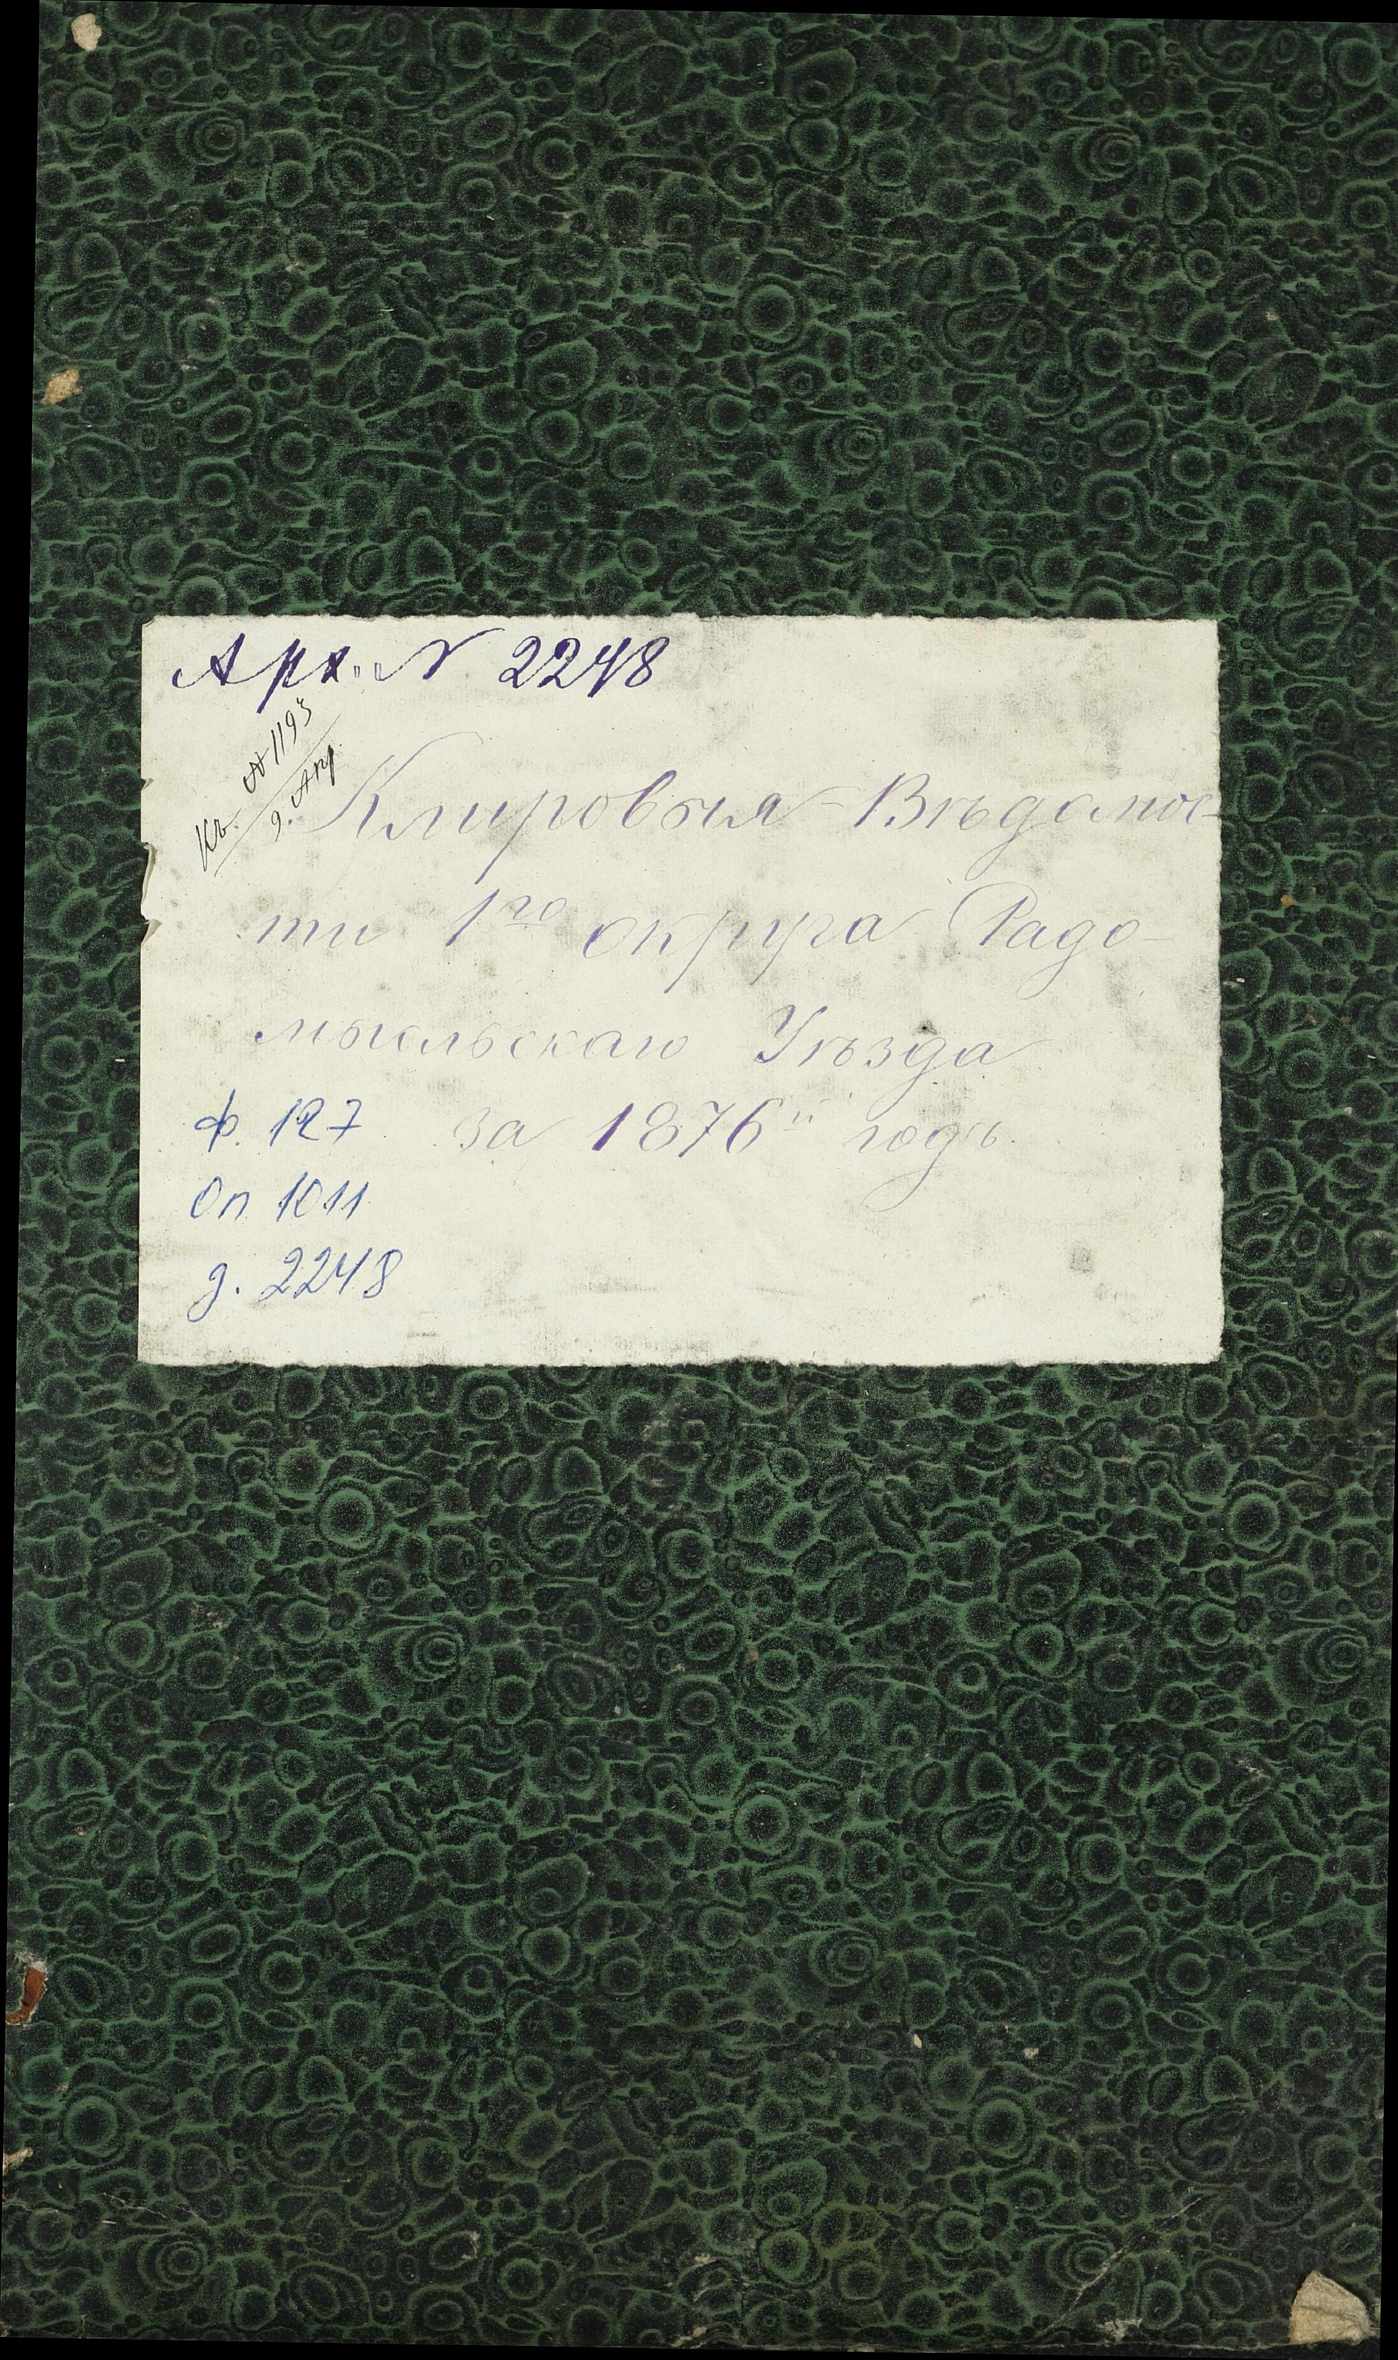 Арх. № 2248
Къ № 1193
9. Апр.
Клировыя Вѣдомос-
ти 1го округа Радо-
мысльскаго Уѣзда
за 1876й годъ.
ф. 127
Оп 1011
д. 2248